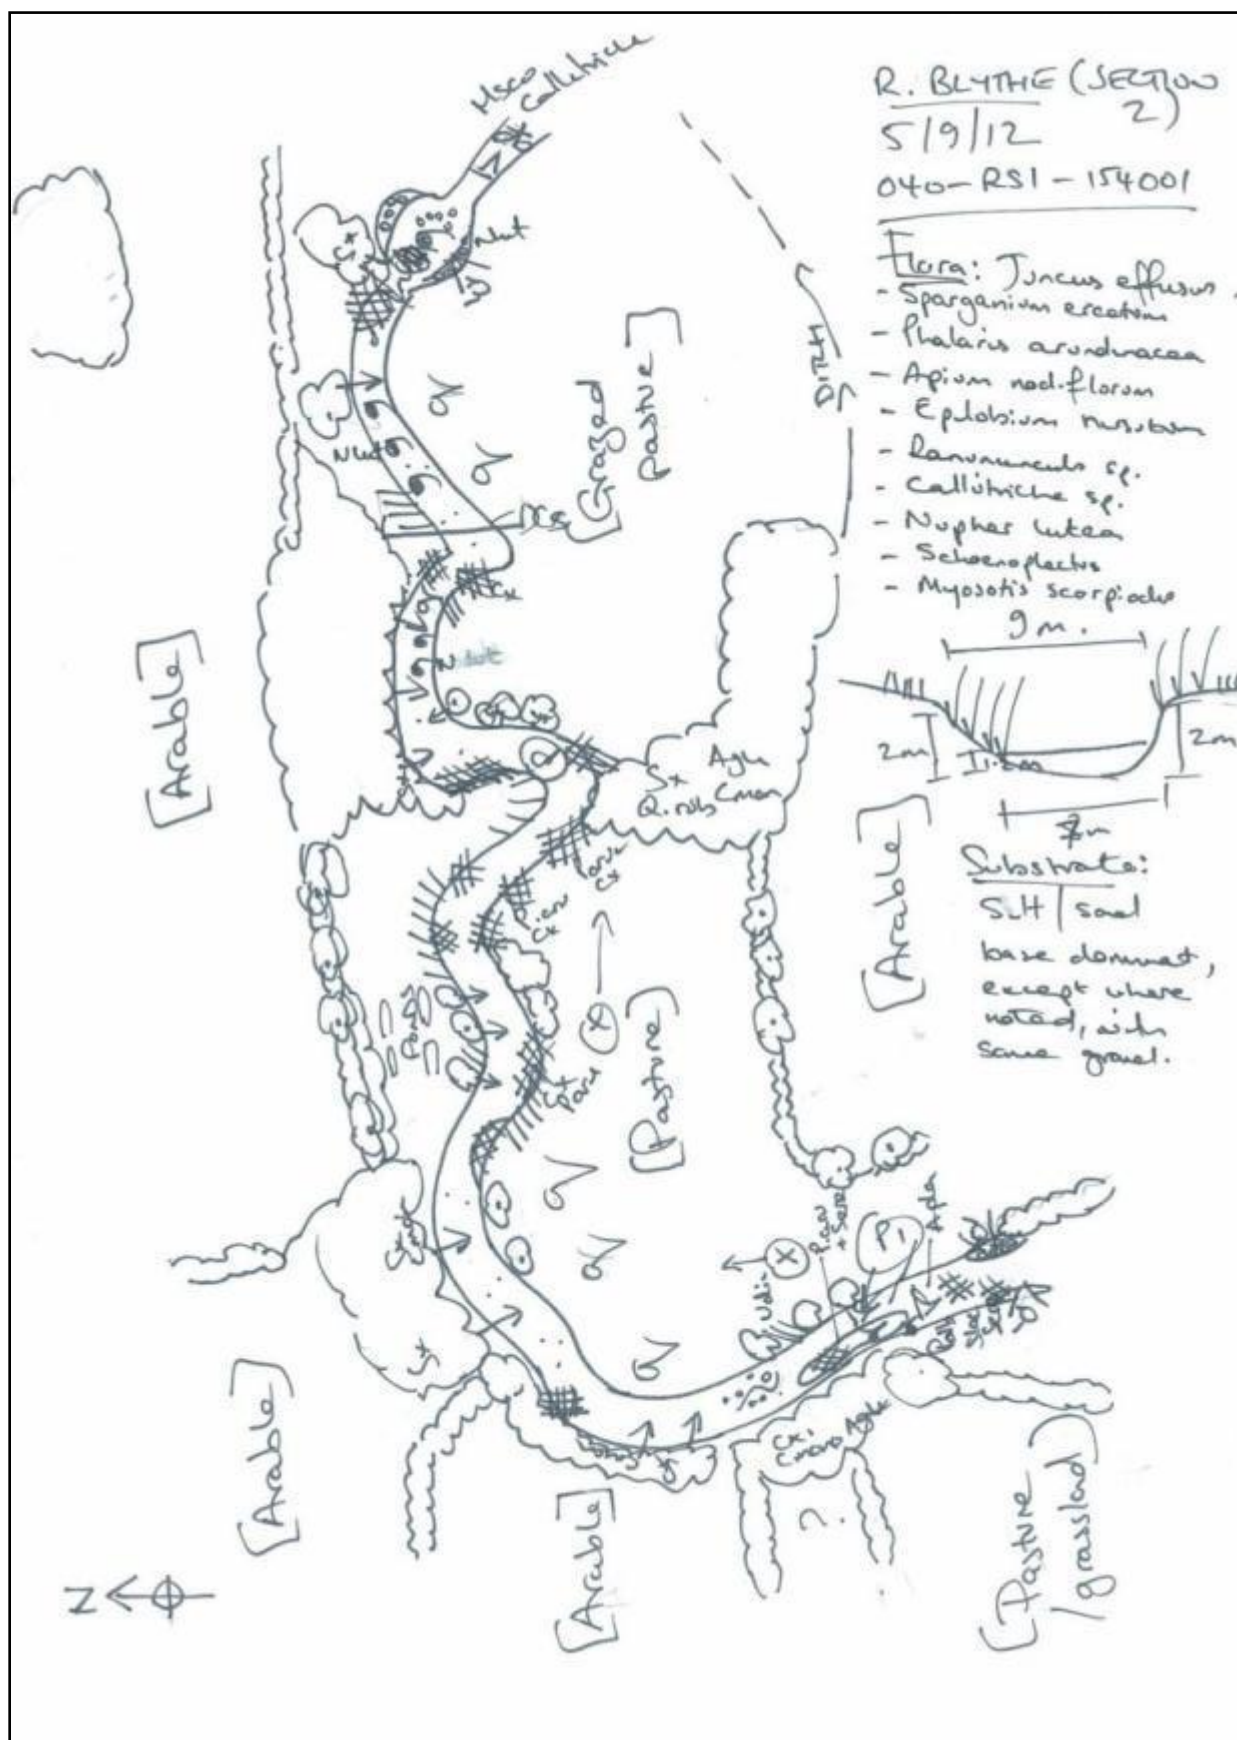 R. BLYTHE (SECTION
2)
5/9/12
040-RSI-154001
Flora: Juncus effusus
- Sparganium erectum
- Phalaris arundinacea
- Apium nodiflorum
- Epilobium hirsutum
- Ranunculus sp.
- Callitriche sp.
- Nuphar lutea
- Schoenoplectus
- Myosotis scorpiodes
9m.
2m
2m
Substrate:
Silt / sand
base dominant,
except where
noted, with
some gravel.
Msco
Callitriche
Cx
Nlut
Nlut
[Grazed
pasture]
DITCH
Cx
[Arable]
Sx Aglu
Q.rob Cmon
[Arable]
Paru
Cx
Cx
Ponds
X
[Pasture]
Cx
Paru
Cx
X
Udio
P1
Apla
[Arable]
[Arable]
Aglu
?
[Pasture
/grassland]
N